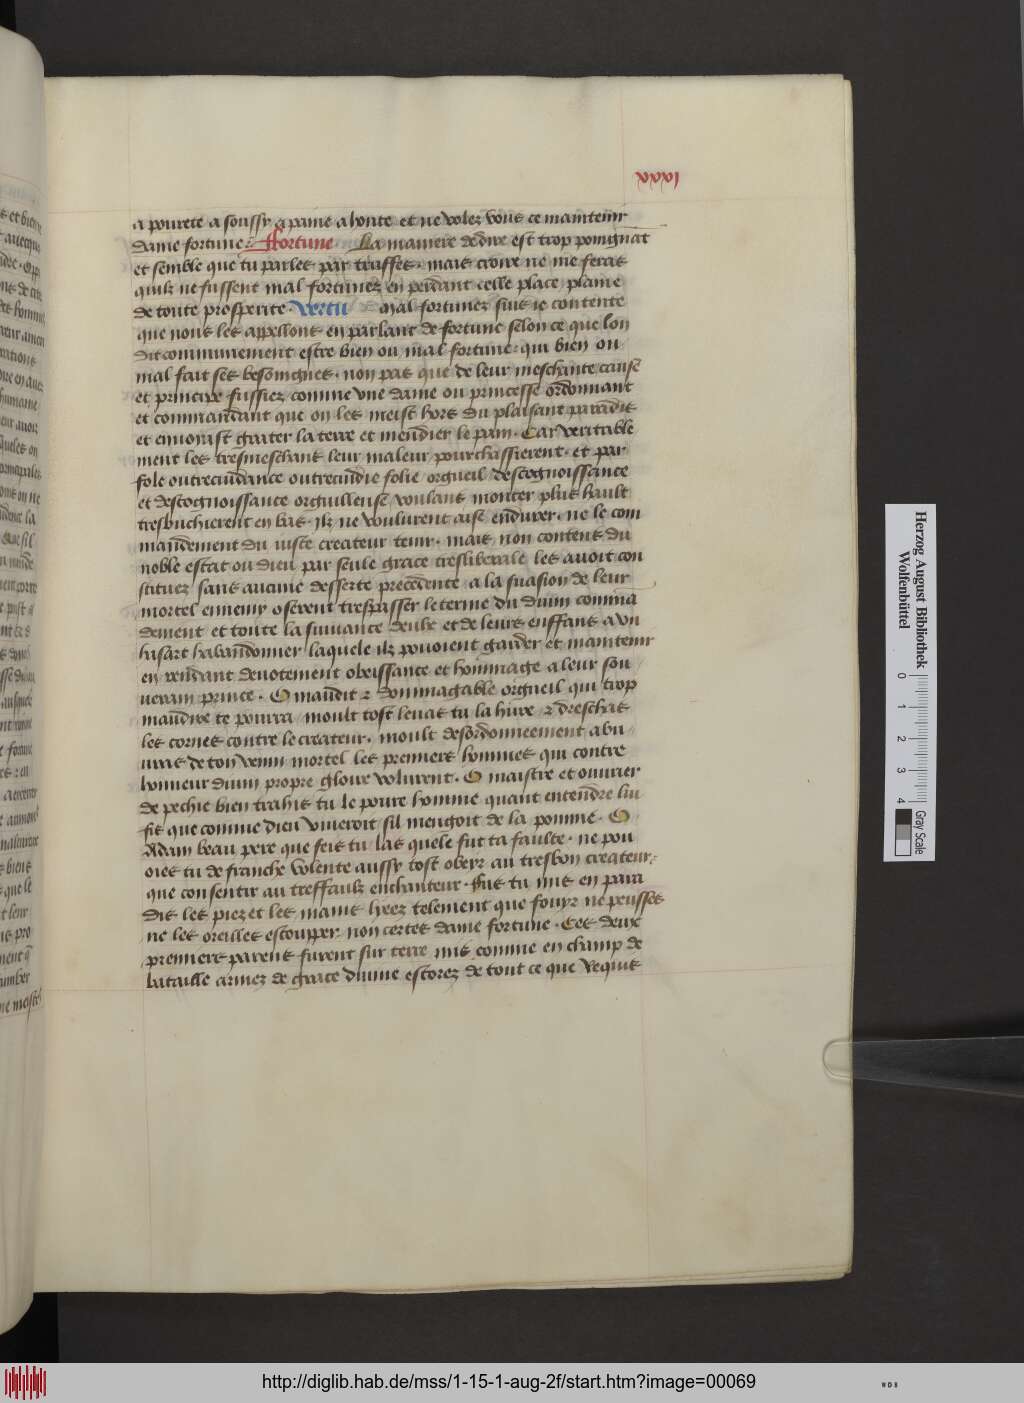 xxxvi
a pourete a soussy a paine a honte et ne volez vous ce maintenir
dame fortune. Ffortune La maniere de dire est trop poingnāt
et semble que tu parles par truffes. mais croire ne me feras
quilz ne fussent mal fortunez en perdant celle place plaine
de toute prosperite. Vertu Mal fortunez suis ie contente
que nous les appellons en parlant de fortune selon ce que lon
dit communement estre bien ou mal fortune. qui bien ou
mal fait ses besoingnes. non pas que de leur meschante cause
et principe fussiez comme vne dame ou princesse ordonnant
et commandant que on les meist hors du plaisant paradis
et enuoiast grater la terre et mendier le pain. Car veritable
ment les tresmeschans leur maleur pourchassierent. et par
fole oultrecuidance oultrecuidie folie orgueil descognoissance
et descognoissance orguilleuse voulans monter plus hault
tresbuchierent en bas. ilz ne voulurent aise endurer. ne le com
mandement du iuste createur tenir. mais non contens du
noble estat ou dieu par seule grace tresliberale les auoit con
stituez sans aucune desserte precedente a la suasion de leur
mortel ennemy oserent trespasser le terme du diuin comma
dement et toute la suiuance deulx et de leurs enffans a vn
hasart habandonner laquele ilz pouoient garder et maintenir
en rendant deuotement obeissance et hommage a leur sou
uerain prince. O maudit et dommagable orgueil qui trop
maudire te pourra moult tost leuas tu la hure et dreschas
les cornes contre le createur. moult desordonneement abu
uras de ton venin mortel les premiers hommes qui contre
honneur diuin propre gloire volurent. O maistre et ouurier
de pechie bien trahis tu le poure homme quant entendre lui
fis que comme dieu viueroit sil mengoit de la pomme. O
Adam beau pere que feis tu las quele fut ta faulte. ne pou
oies tu de franche volente aussy tost obeyr au tresbon createur
que consentir au tresfaulx enchanteur. Eus tu mis en para
dis les piez et les mains lyez telement que fouyr ne peusses
ne les oreilles estoupper. non certes dame fortune. Ces deux
premiers parens furent sur terre mis comme en champ de
bataille armez de grace diuine estorez de tout ce que requis
Herzog August Bibliothek
Wolfenbüttel
0 1 2 3 4
Gray Scale
http://diglib.hab.de/mss/1-15-1-aug-2f/start.htm?image=00069
WDB